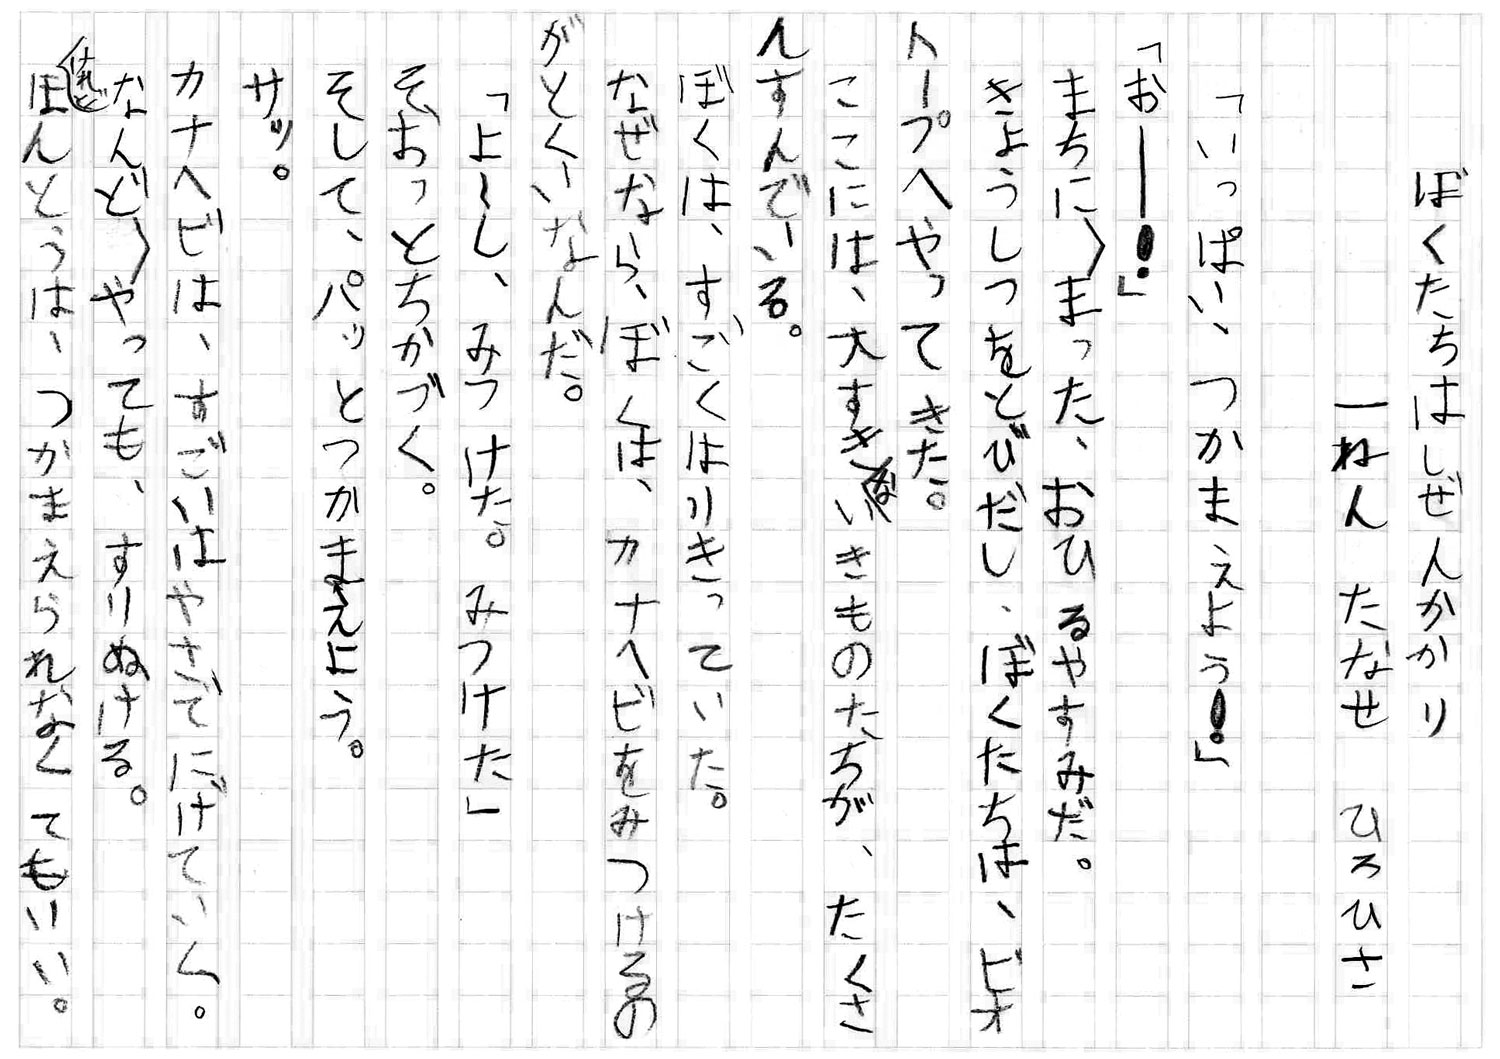 ぼくたちはしぜんかかり
一ねん たなせ ひろひさ
「いっぱい、つかまえよう!」
「おー――!」
まちに〉まった、おひるやすみだ。
きょうしつをとびだし、ぼくたちは、ビオ
トープへやってきた。
ここには、大すきないきものたちが、たくさ
んすんでいる。
ぼくは、すごくはりきっていた。
なぜなら、ぼくは、カナヘビをみつけるの
がとくいなんだ。
「よ～し、みつけた。みつけた」
そおっとちかづく。
そして、パッとつかまえよう。
サッ。
カナヘビは、すごいはやさでにげていく。
なんど〉やっても、すりぬける。
けれどほんとうは、つかまえられなくてもいい。